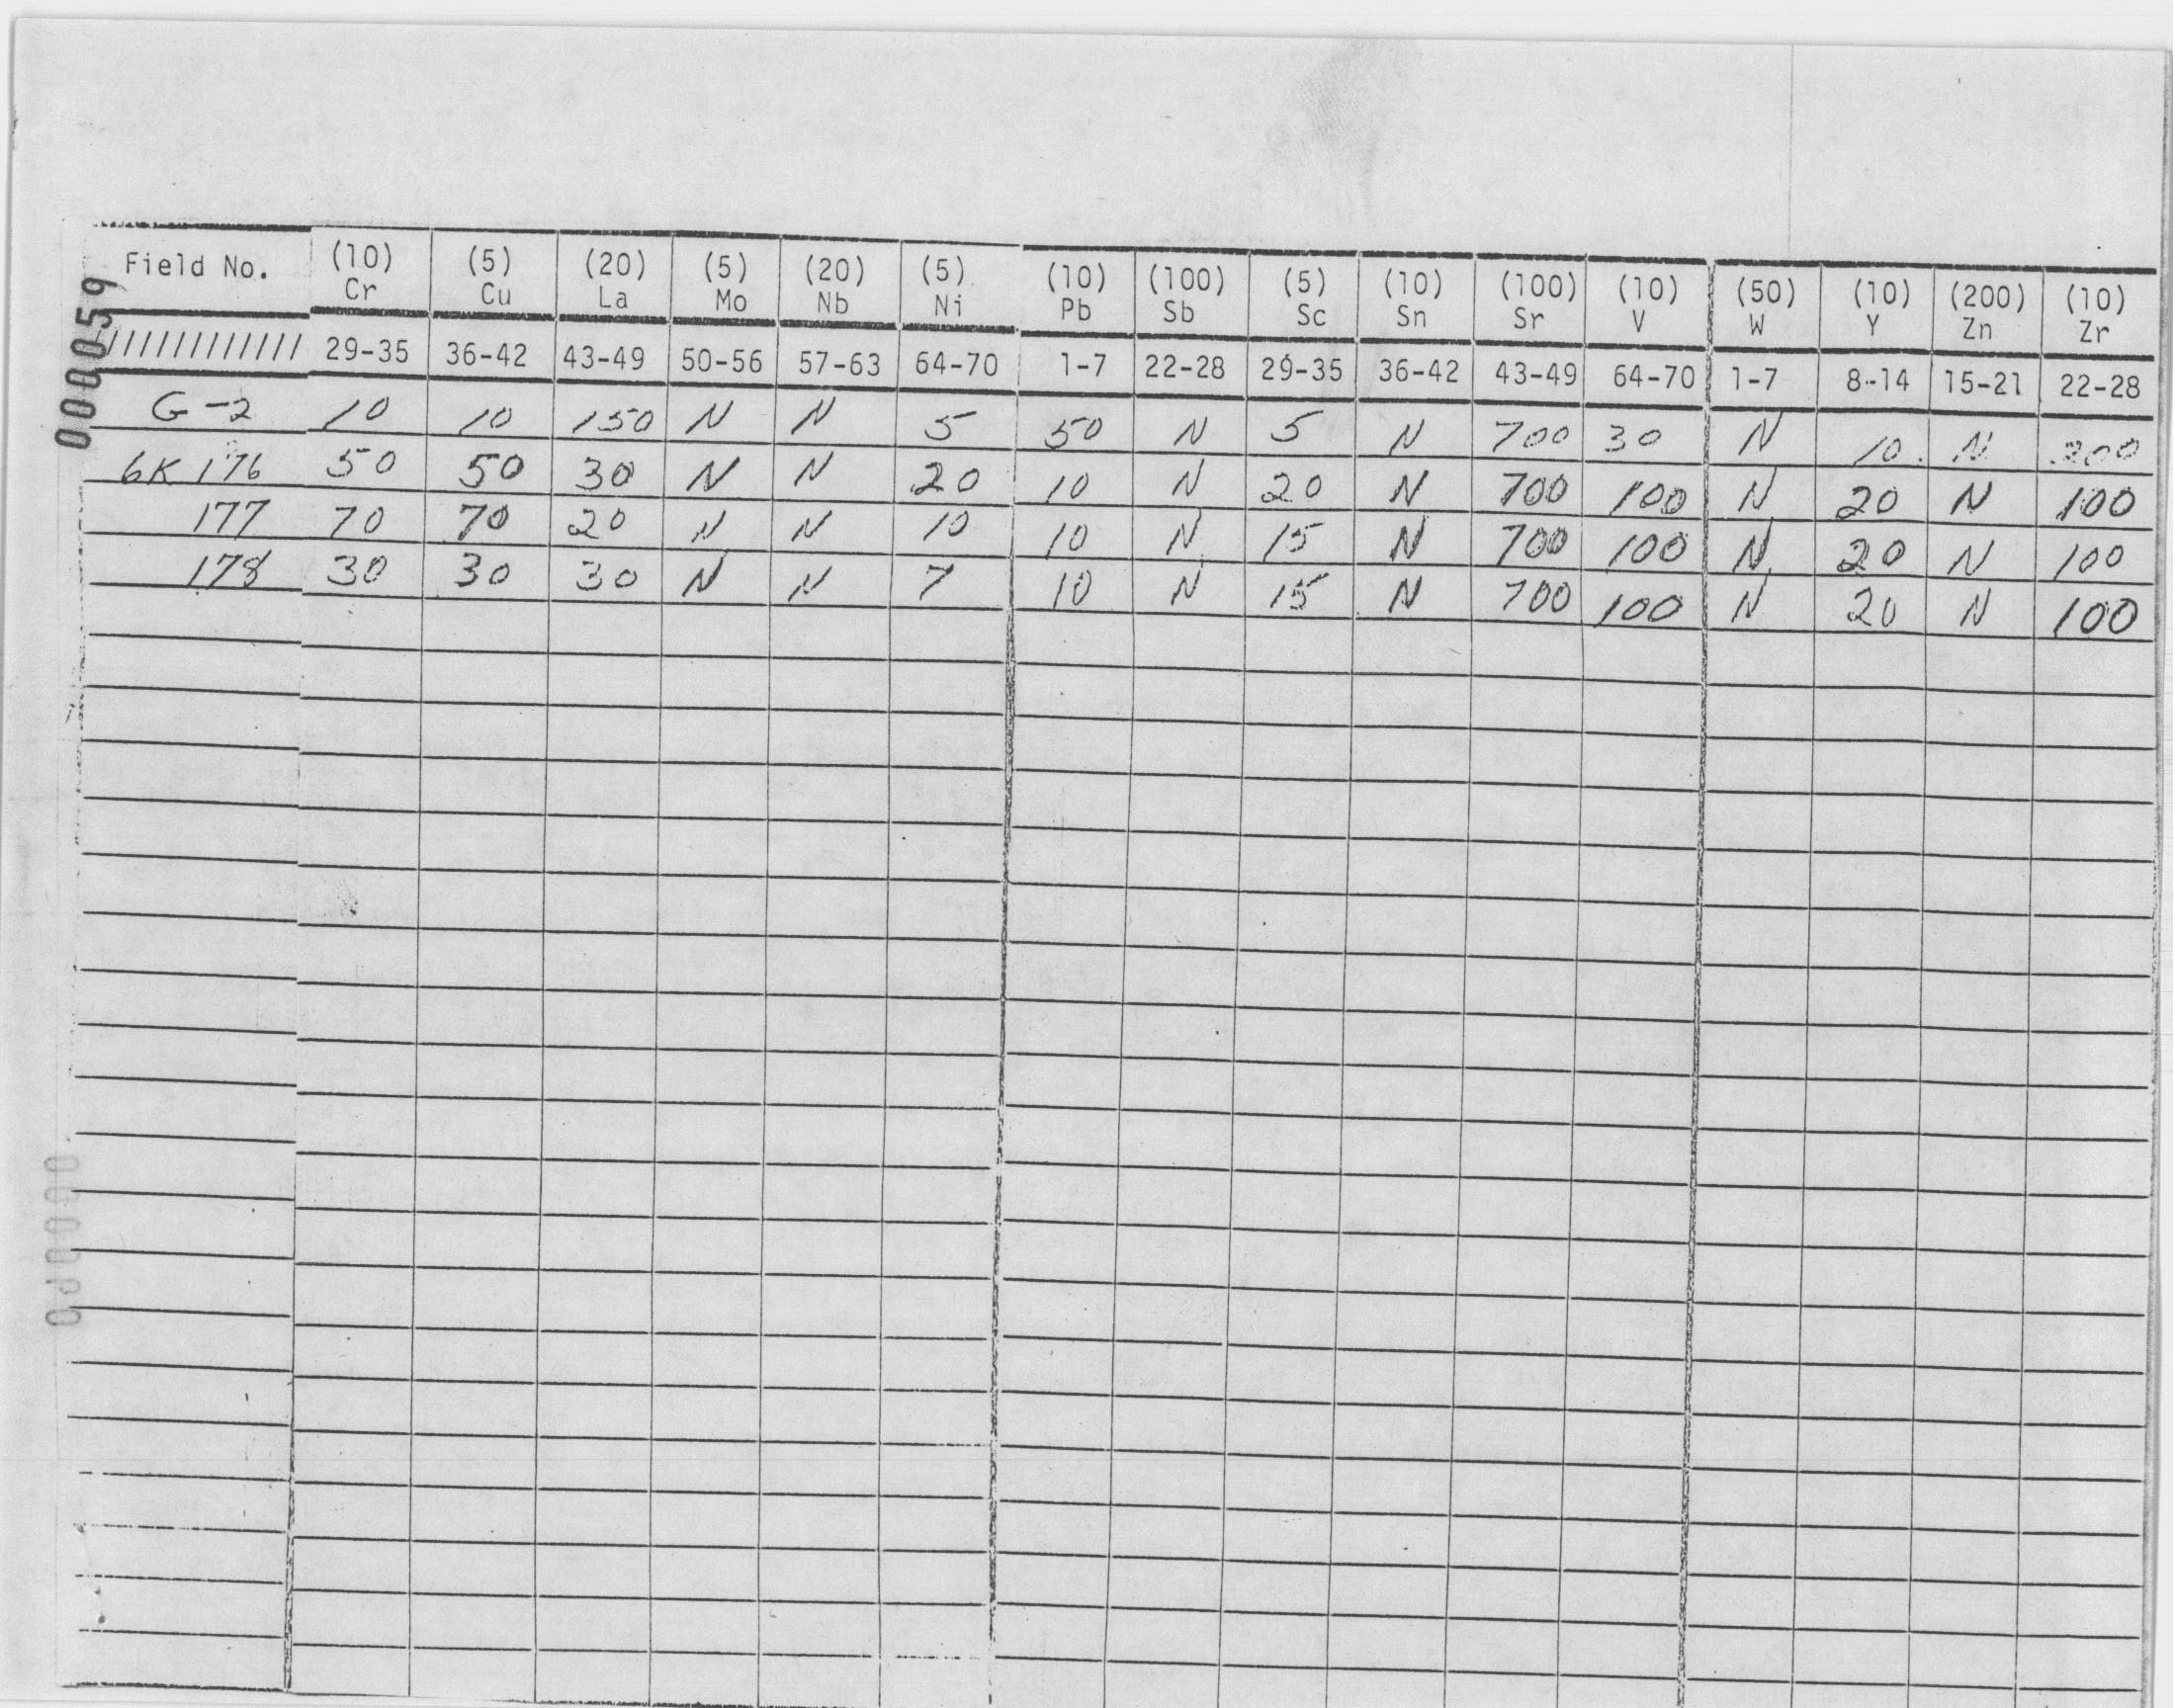 000059
Field No. (10) (5) (20) (5) (20) (5) (10) (100) (5) (10) (100) (10) (50) (10) (200) (10)
Cr Cu La Mo Nb Ni Pb Sb Sc Sn Sr V W Y Zn Zr
//////////// 29-35 36-42 43-49 50-56 57-63 64-70 1-7 22-28 29-35 36-42 43-49 64-70 1-7 8-14 15-21 22-28
G-2 10 10 150 N N 5 50 N 5 N 700 30 N 10 N 200
6K 176 50 50 30 N N 20 10 N 20 N 700 100 N 20 N 100
177 70 70 20 N N 10 10 N 15 N 700 100 N 20 N 100
178 30 30 30 N N 7 10 N 15 N 700 100 N 20 N 100